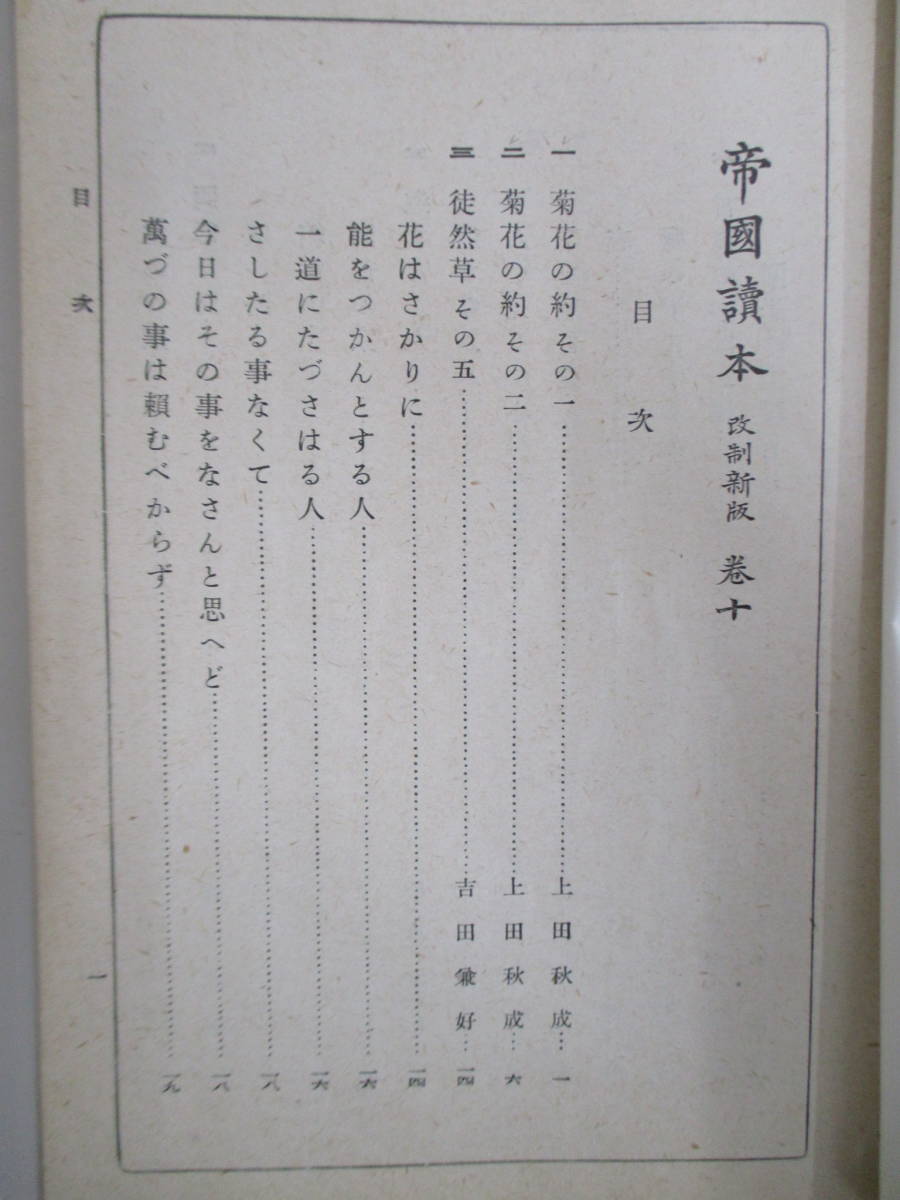 帝國讀本 改制新版 卷十
目次
一 菊花の約 その一……上田秋成…一
二 菊花の約 その二……上田秋成…六
三 徒然草 その五……吉田兼好…一四
花はさかりに……一四
能をつかんとする人……一六
一道にたづさはる人……一六
さしたる事なくて……一八
今日はその事をなさんと思へど……一八
萬づの事は頼むべからず……一九
目次
一